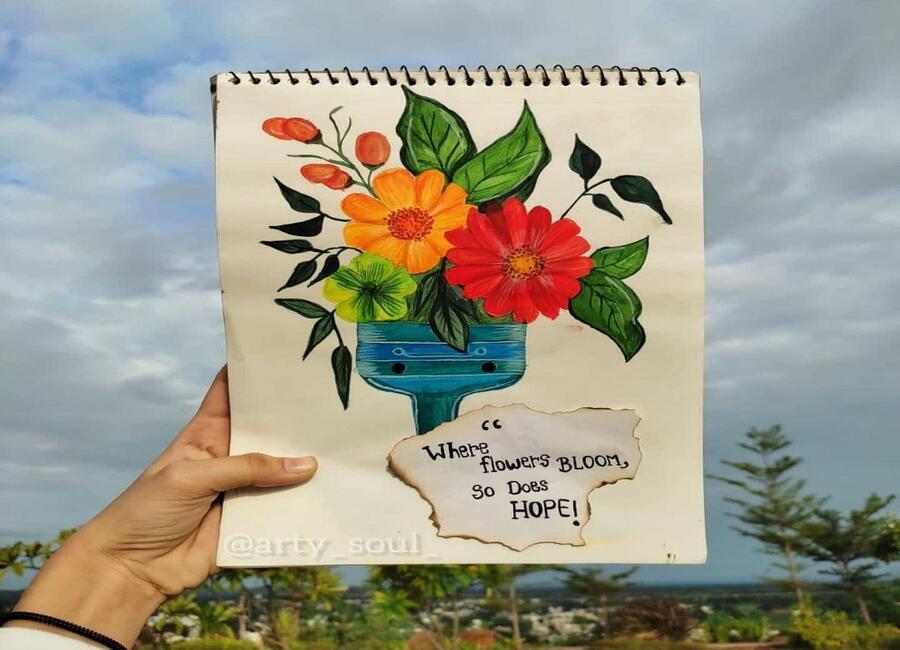 “
Where
flowers BLOOM,
So Does
HOPE!
@arty_soul_